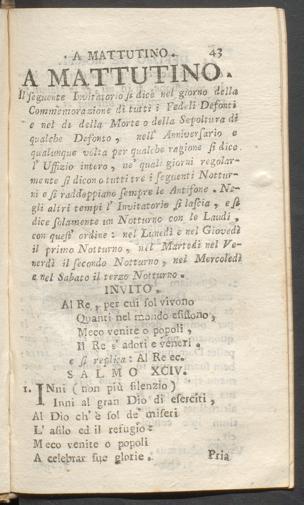 . A MATTUTINO . 43
A MATTUTINO .
Il seguente Invitatorio si dice nel giorno della
Commemorazione di tutti i Fedeli Defonti
e nel dì della Morte o della Sepoltura di
qualche Defonto , nell' Anniversario e
qualunque volta per qualche ragione si dice
l' Uffizio intero , ne' quali giorni regolar-
mente si dicono tutti tre i seguenti Nottur-
ni e si raddoppiano sempre le Antifone . Ne-
gli altri tempi l' Invitatorio si lascia , e si
dice solamente un Notturno con le Laudi ,
con quest' ordine : nel Lunedì e nel Giovedì
il primo Notturno , nel Martedì nel Ve-
nerdì il secondo Notturno , nel Mercoledì
e nel Sabato il terzo Notturno .
INVITO .
Al Re , per cui sol vivono
Quanti nel mondo esistono ,
Meco venite o popoli ,
Il Re s' adori e veneri .
e si replica : Al Re ec.
SALMO XCIV.
1. INni ( non più silenzio )
Inni al gran Dio di eserciti ,
Al Dio ch' è sol de' miseri
L' asilo ed il refugio :
Meco venite o popoli
A celebrar sue glorie . Pria